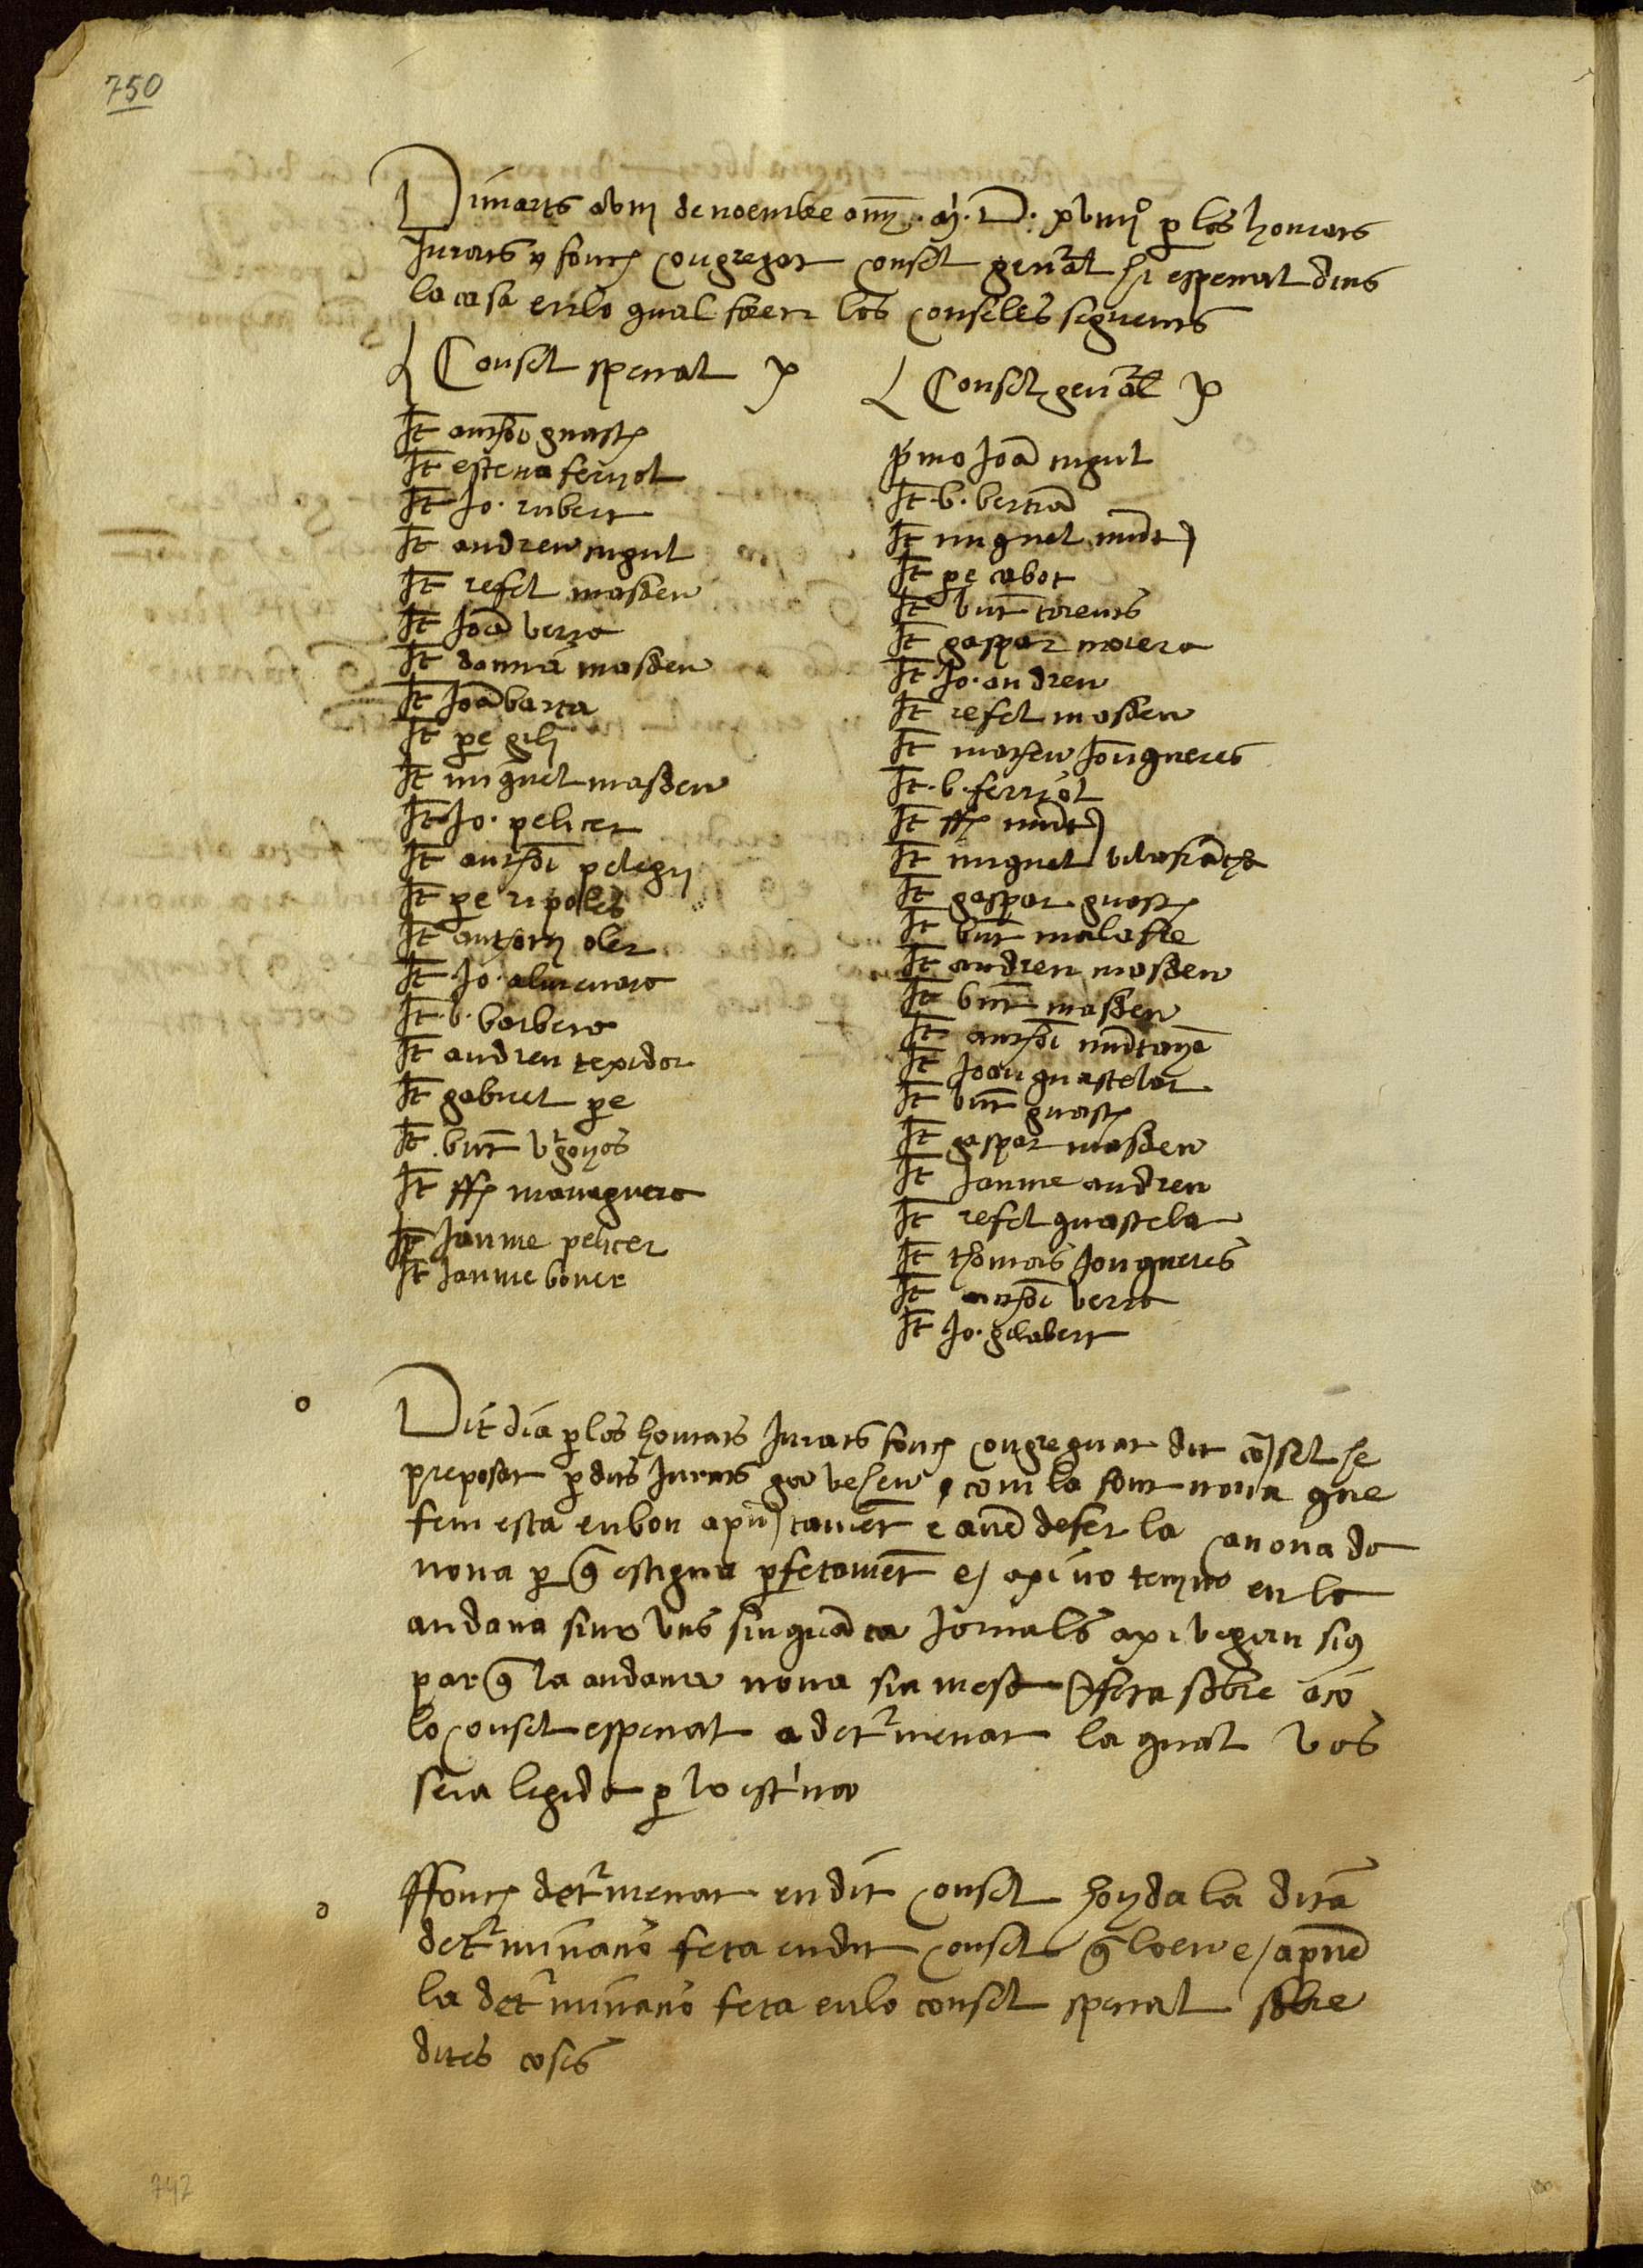 750
Dimarts xviii de noembre any .M. D. xviiii° p los honrats
Jurats y fonch congregat consel general he espesial dins
la casa en lo qual foren los conseles seguents
Consel spesial
It anthoni guasch
It esteva feriol
It Jo. rubert
It andreu ningul
It rafel masdeu
It Joa verra
It damia masdeu
It Joa barta
It pe gili
It miquel masdeu
It Jo. pelicer
It anthoni pelegri
It pe ripoles
It anthoni oler
It Jo. almenara
It .b. barbera
It andreu texidor
It gabriel pe
It . bnt vrgonos
It ffh managuera
It Jaume pelicer
It Jaume bover
Consel general
pmo Joa ningul
It .b. bertra
It miquel munt
It pe abot
It bnt torents
It gaspar morera
It Jo. andreu
It rafel masdeu
It matheu Jonqueres
It .b. ferriol
It ffh munt
It miquel vilafrancha
It gaspar guasch
It bnt malafre
It andreu masdeu
It bnt masdeu
It anthoni muntanye
It Joan guastelar
It bnt guasch
It gaspar masdeu
It Jaume andreu
It rafel guastela
It thomas Jonqueres
It anthoni verra
It Jo. gilabert
Dit dia p los honrats Jurats fonch congreguat dit cosel he
preposat p dits Jurats ja veheu com la font nova que
fem esta en bon apuntament e avem de fer la canonada
nova p q estigua pfetament e axi no tenim en la
andana sino vns sinquanta Jornals axi vegen si
par q la andana nova sia mes fera sobre aso
lo consel espesial a determenat la qual vos
sera legida p lo escriva
Ffonch determenat en dit consel hoyda la dita
determinatio feta en dit consel q loen e apven
la determinatio feta en lo consel spesial sobre
dites coses
742